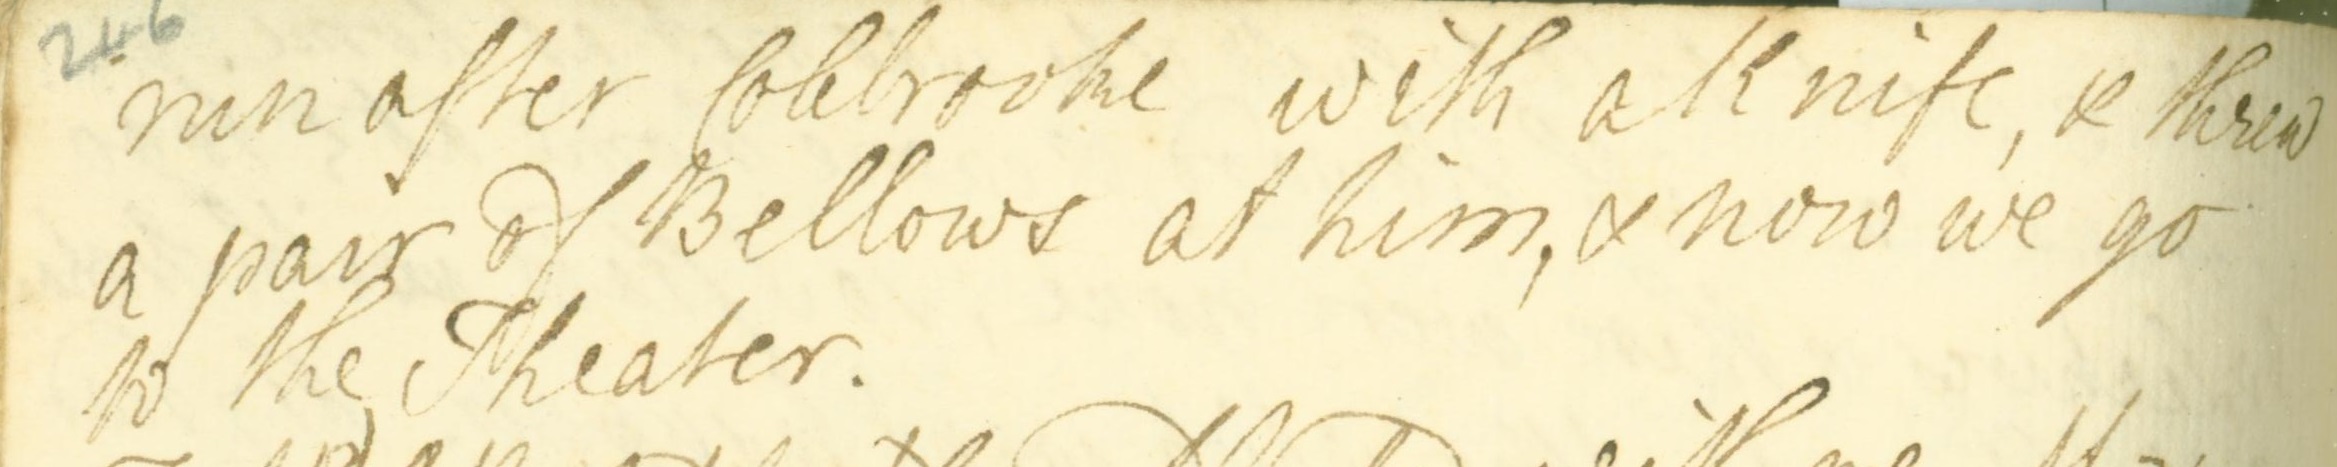 246
run after Colebrooke with a Knife, & threw
a pair of Bellows at him, & now we go
to the Theater.